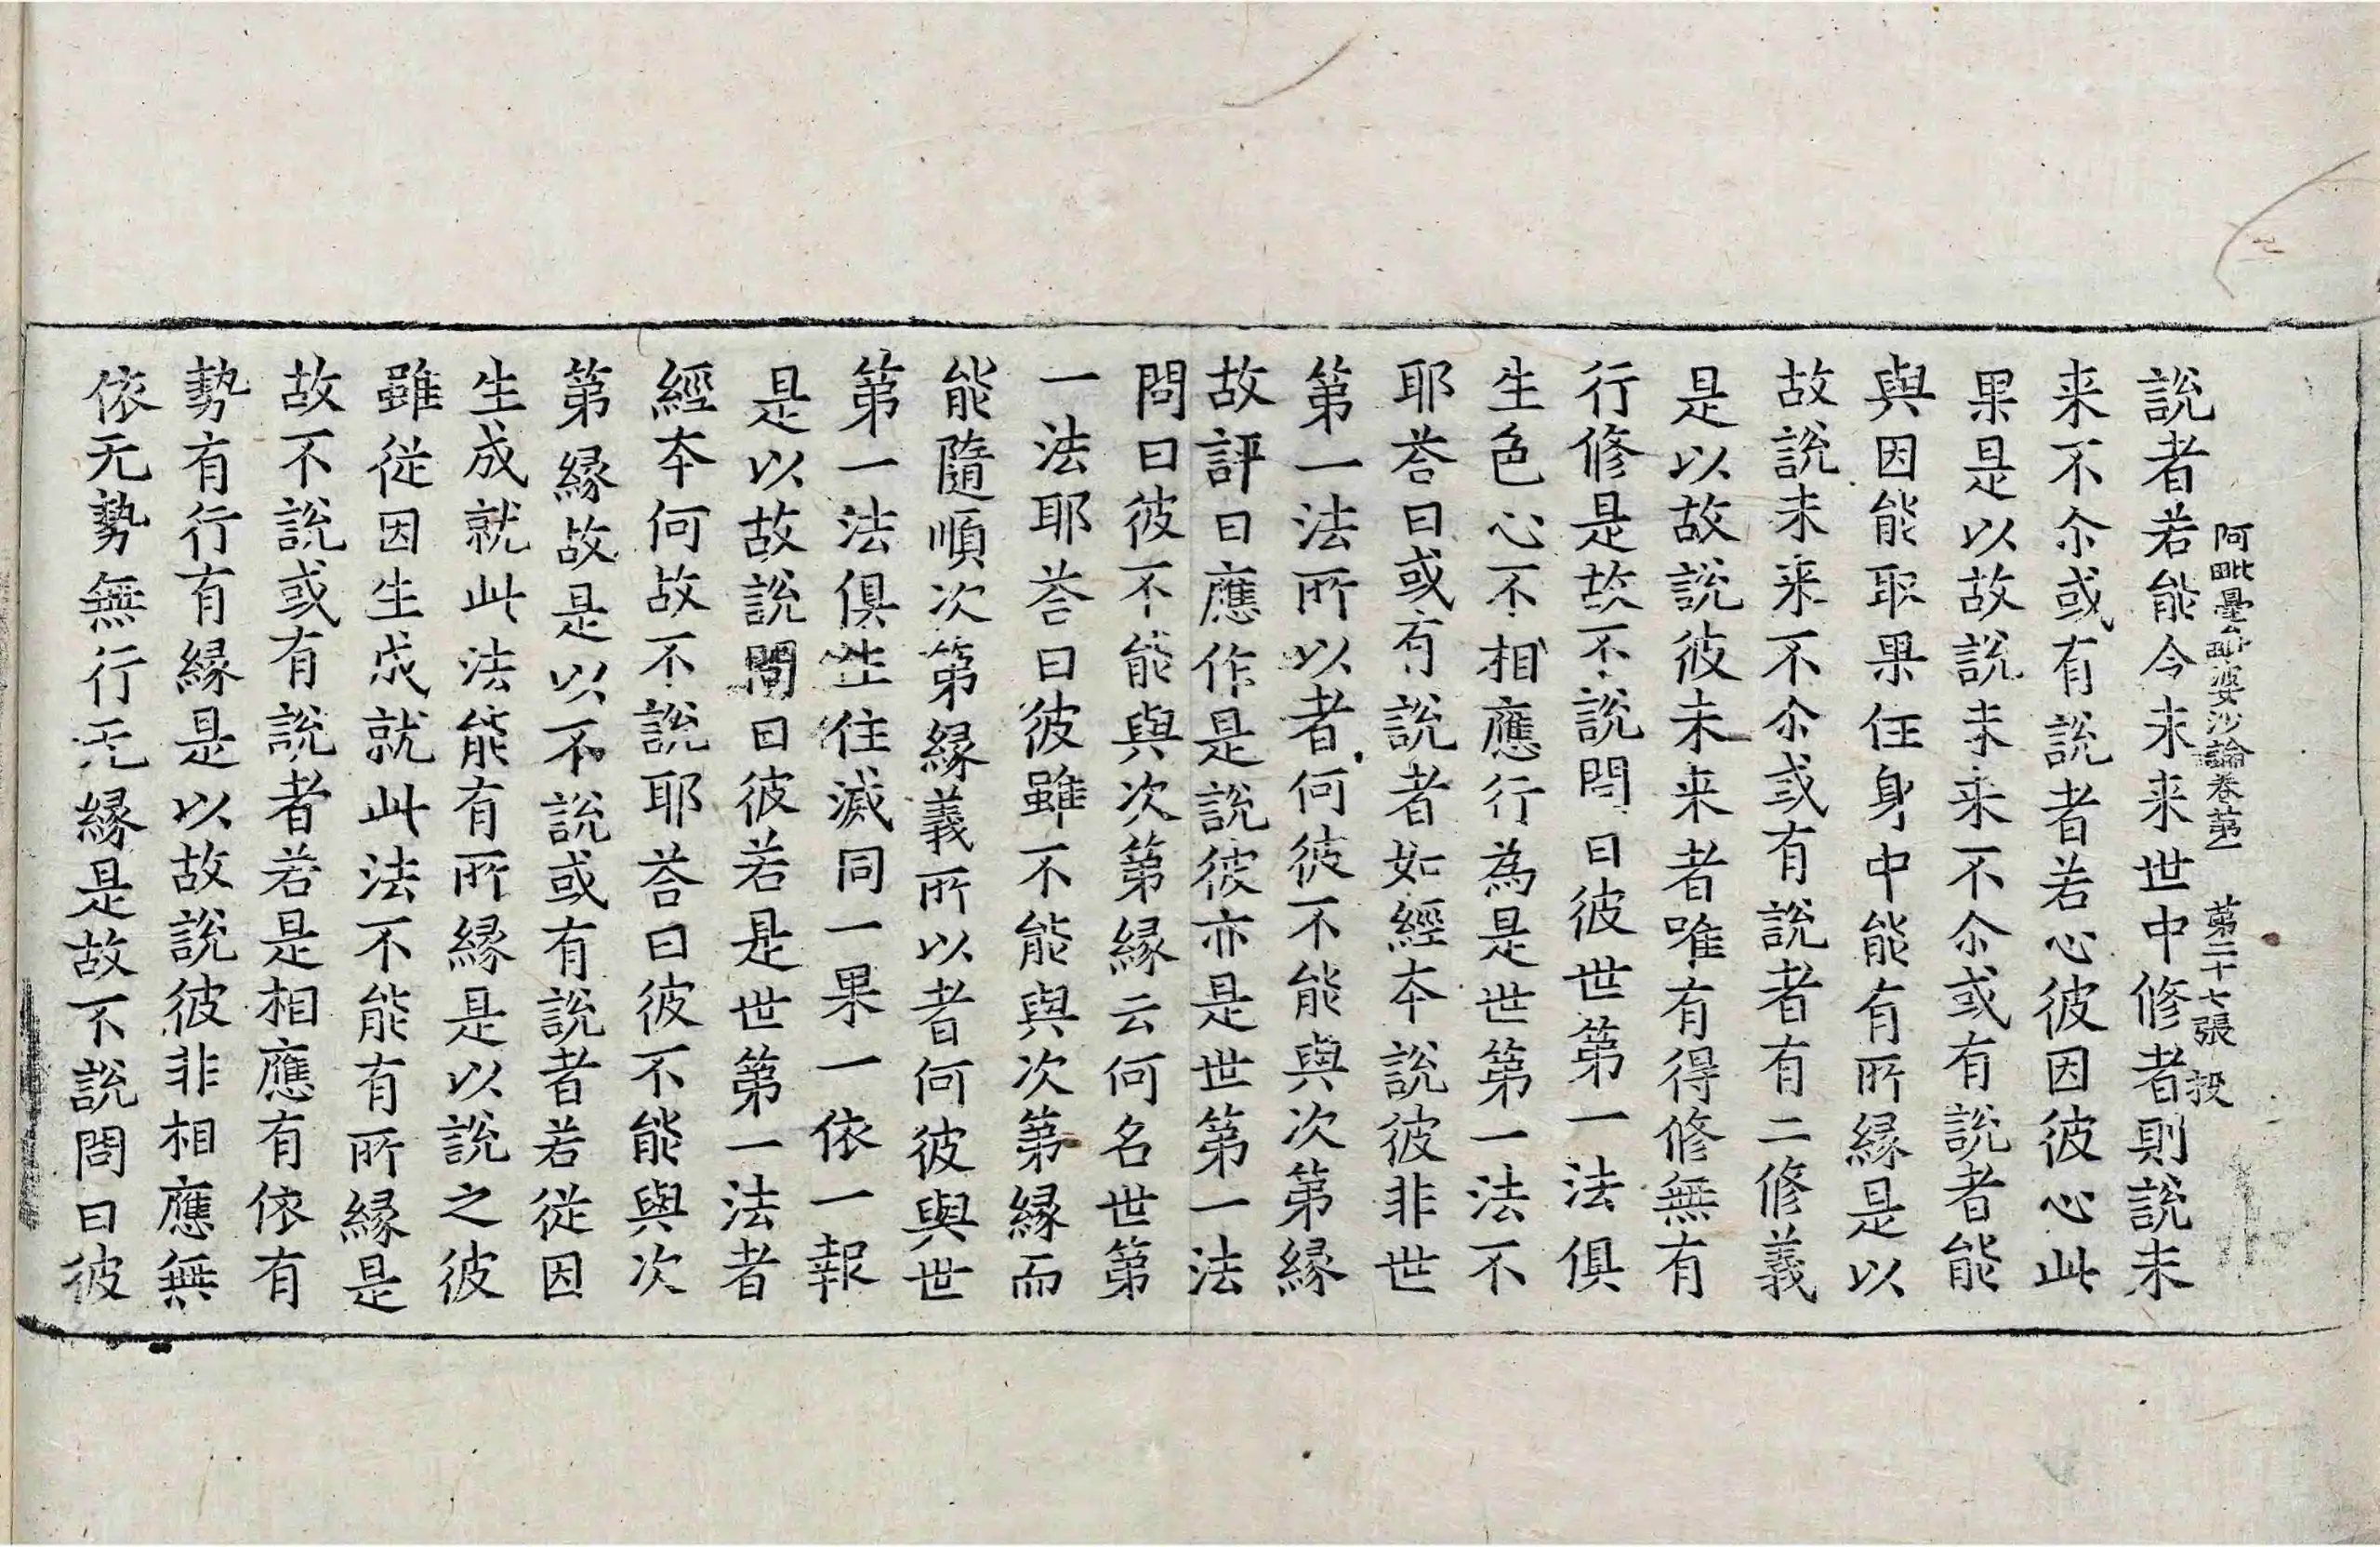 阿毗曇毗婆沙論卷第一　第二十七張　投
說者若能令未来世中修者則說未
来不尒或有說者若心彼因彼心此
果是以故說未来不尒或有說者能
與因能取果住身中能有所縁是以
故說未来不尒或有說者有二修義
是以故說彼未来者唯有得修無有
行修是故不說問曰彼世第一法俱
生色心不相應行為是世第一法不
耶荅曰或有說者如經本說彼非世
第一法所以者何彼不能與次第縁
故評曰應作是說彼亦是世第一法
問曰彼不能與次第縁云何名世第
一法耶荅曰彼雖不能與次第縁而
能隨順次第縁義所以者何彼與世
第一法俱生住滅同一果一依一報
是以故說問曰彼若是世第一法者
經本何故不說耶荅曰彼不能與次
第縁故是以不說或有說者若從因
生成就此法能有所縁是以說之彼
雖從因生成就此法不能有所縁是
故不說或有說者若是相應有依有
勢有行有縁是以故說彼非相應無
依无勢無行无縁是故不說問曰彼